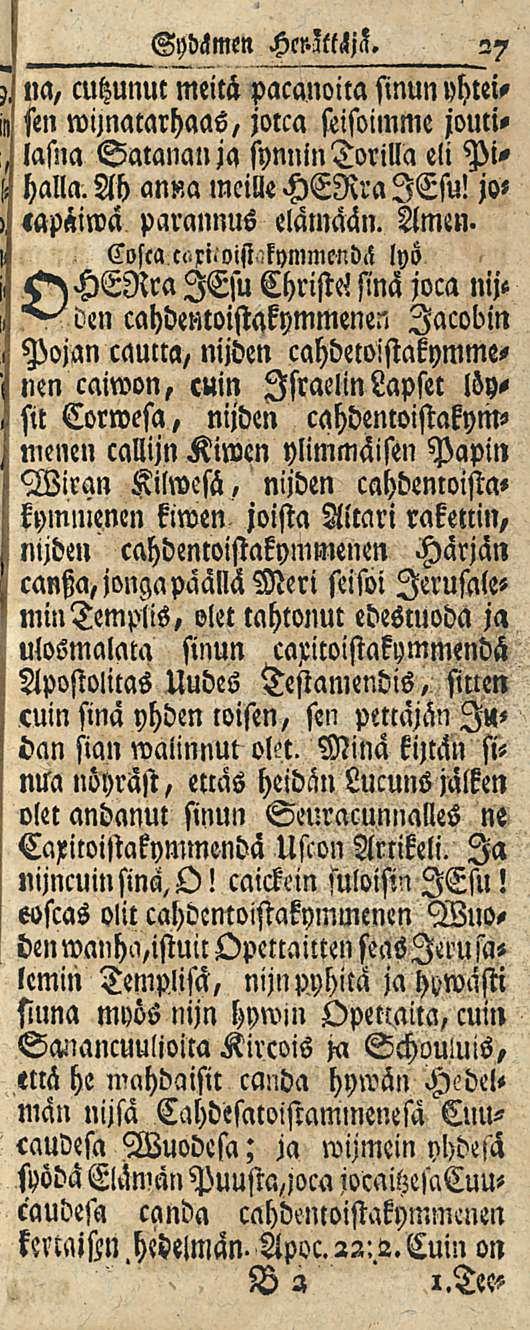 Sydämen Herättäjä. 27
na, cutzunut meitä pacanoita sinun yhtei-
sen wijnatarhaas, jotca seisoimme jouti-
lasna Satanan ja synnin Torilla eli Pi-
halla. Ah anna meille HERra JEsu! jo-
capäiwä parannus elämään. Amen.
Cosca caxitoistakymmendä lyö
O HERra JEsu Christe! sinä joca nij-
den cahdentoistakymmenen Jacobin
Pojan cautta, nijden cahdetoistakymme-
nen caiwon, cuin Israelin Lapset löy-
sit Corwesa, nijden cahdentoistakym-
menen callijn Kiwen ylimmäisen Papin
Wiran Kilwesä, nijden cahdentoista-
kymmenen kiwen joista Altari rakettin,
nijden cahdentoistakymmenen Härjän
canßa, jonga päällä Meri seisoi Jerusale-
min Templis, olet tahtonut edestuoda ja
ulosmalata sinun caxitoistakymmendä
Apostolitas Uudes Testamendis, sitten
cuin sinä yhden toisen, sen pettäjän Ju-
dan sian walinnut olet. Minä kijtän si-
nua nöyräst, ettäs heidän Lucuns jälken
olet andanut sinun Seuracunnalles ne
Caxitoistakymmendä Uscon Artikeli. Ja
nijncuin sinä, O! caickein suloisin JEsu!
coscas olit cahdentoistakymmenen Wuo-
den wanha, istuit Opettaitten seas Jerusa-
lemin Templisä, nijn pyhitä ja hywästi
siuna myös nijn hywin Opettaita, cuin
Sanancuulioita Kircois ja Schouluis,
että he mahdaisit canda hywän Hedel-
män nijsä Cahdesatoistammenesä Cuu-
caudesa Wuodesa; ja wijmein yhdesä
syödä Elämän Puusta, joca jocaitzesa Cuu-
caudesa canda cahdentoistakymmenen
kertaisen hedelmän. Apoc. 22:2. Cuin on
B 2 1. Tee-